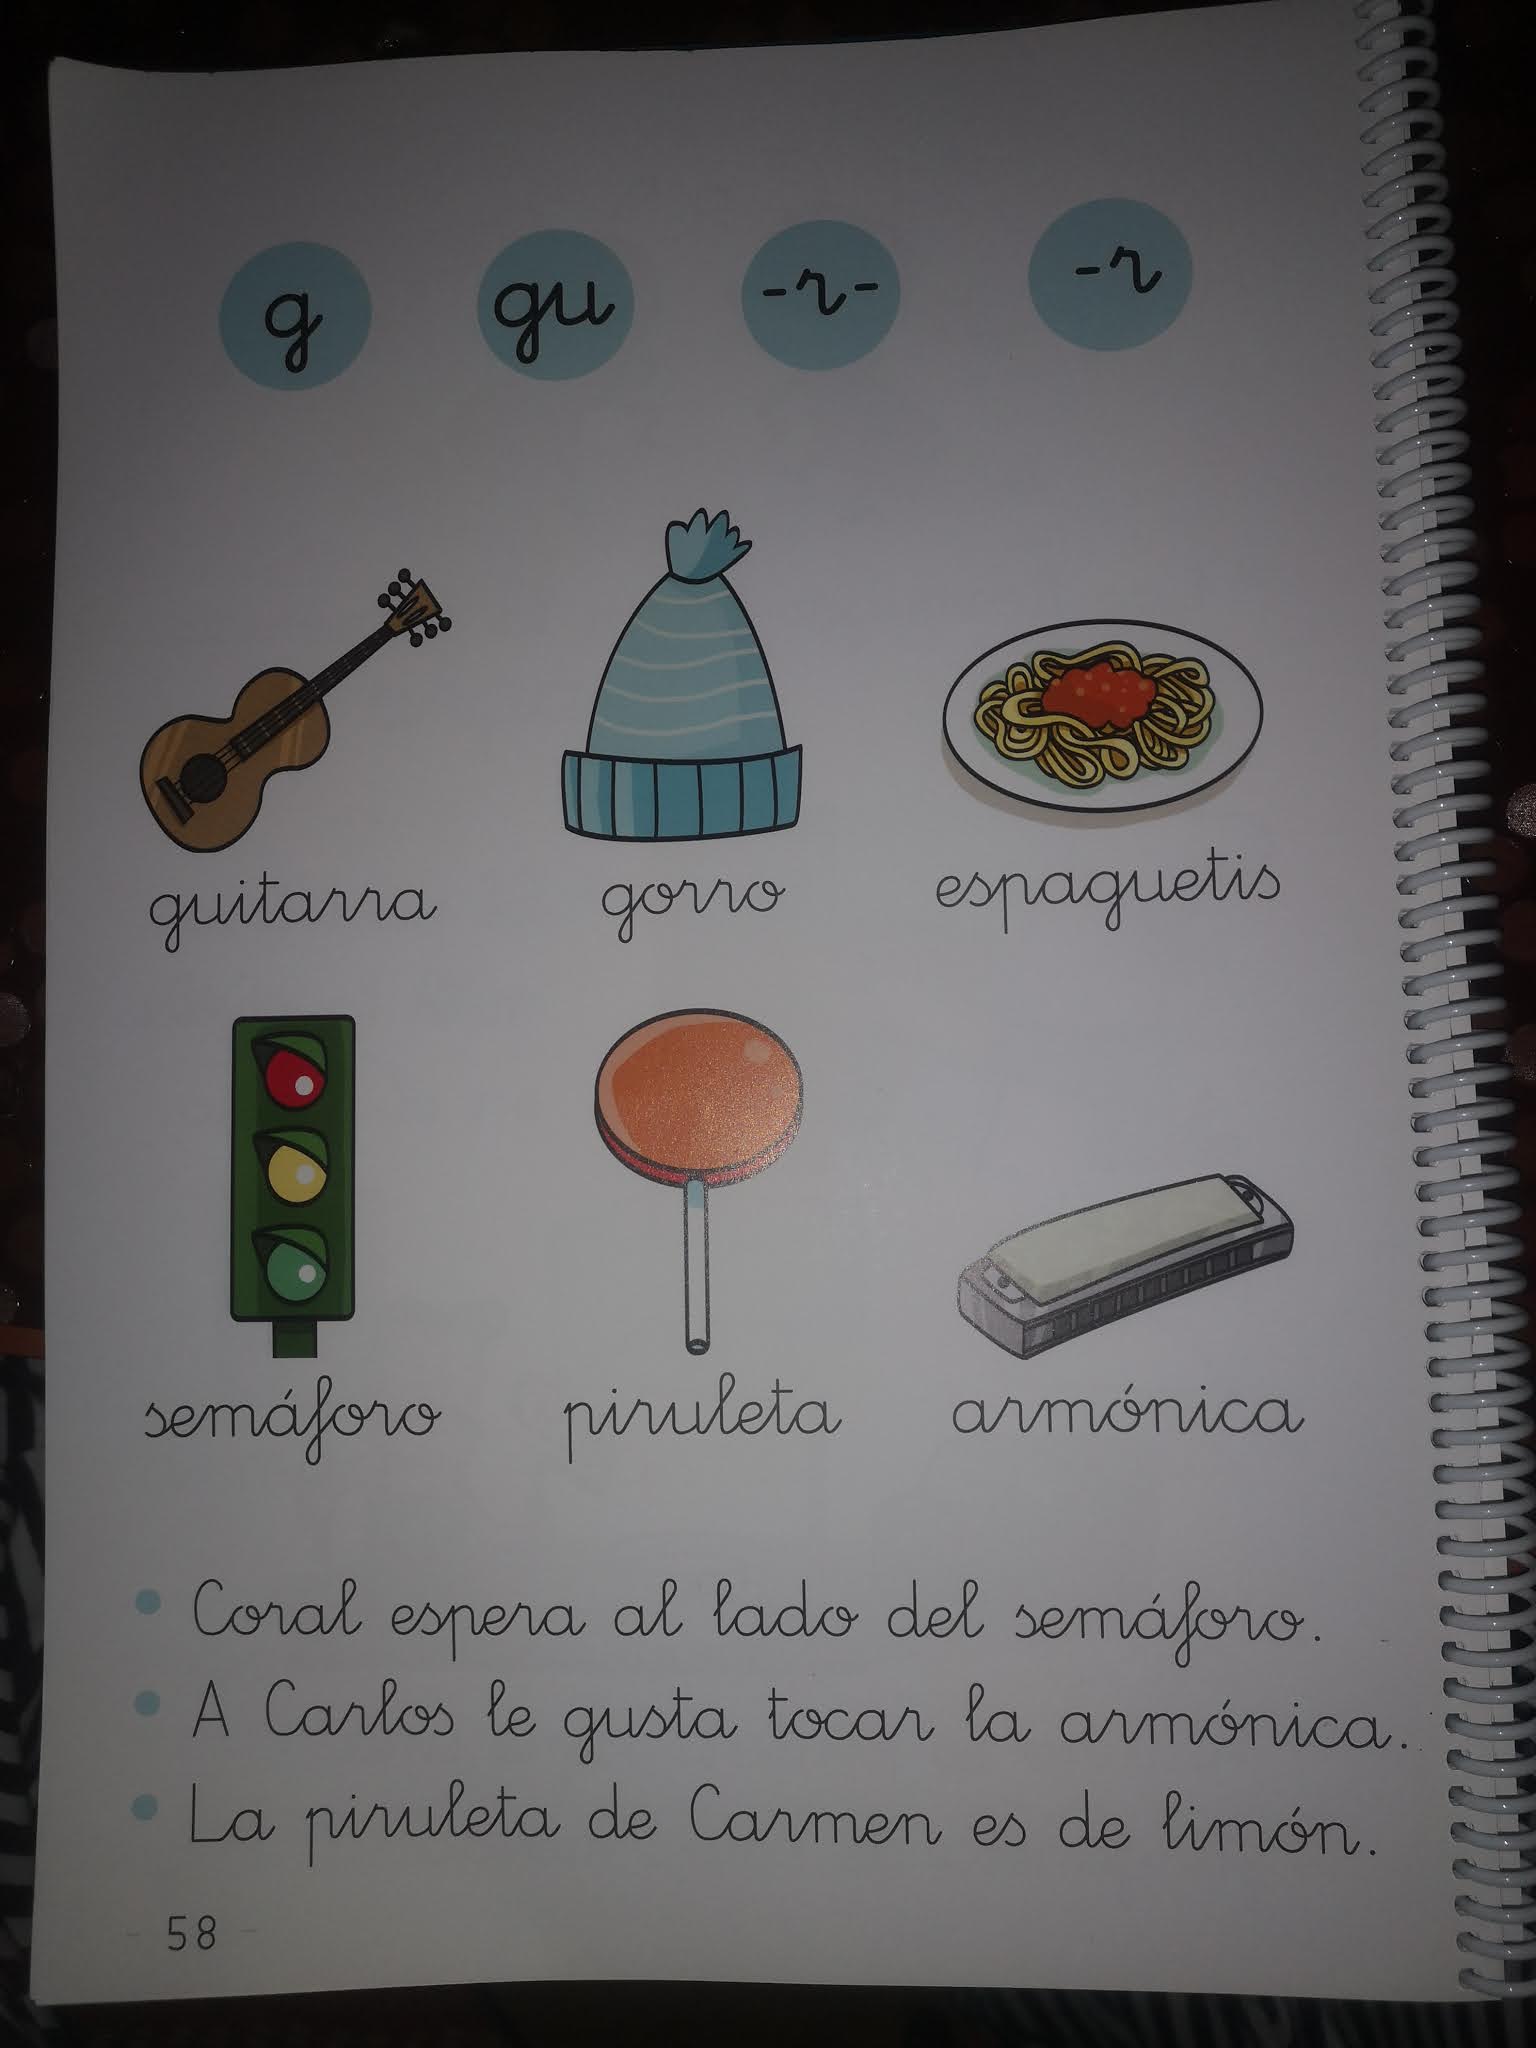 g gu -r- -r
guitarra gorro espaguetis
semáforo piruleta armónica
Coral espera al lado del semáforo.
A Carlos le gusta tocar la armónica.
La piruleta de Carmen es de limón.
58